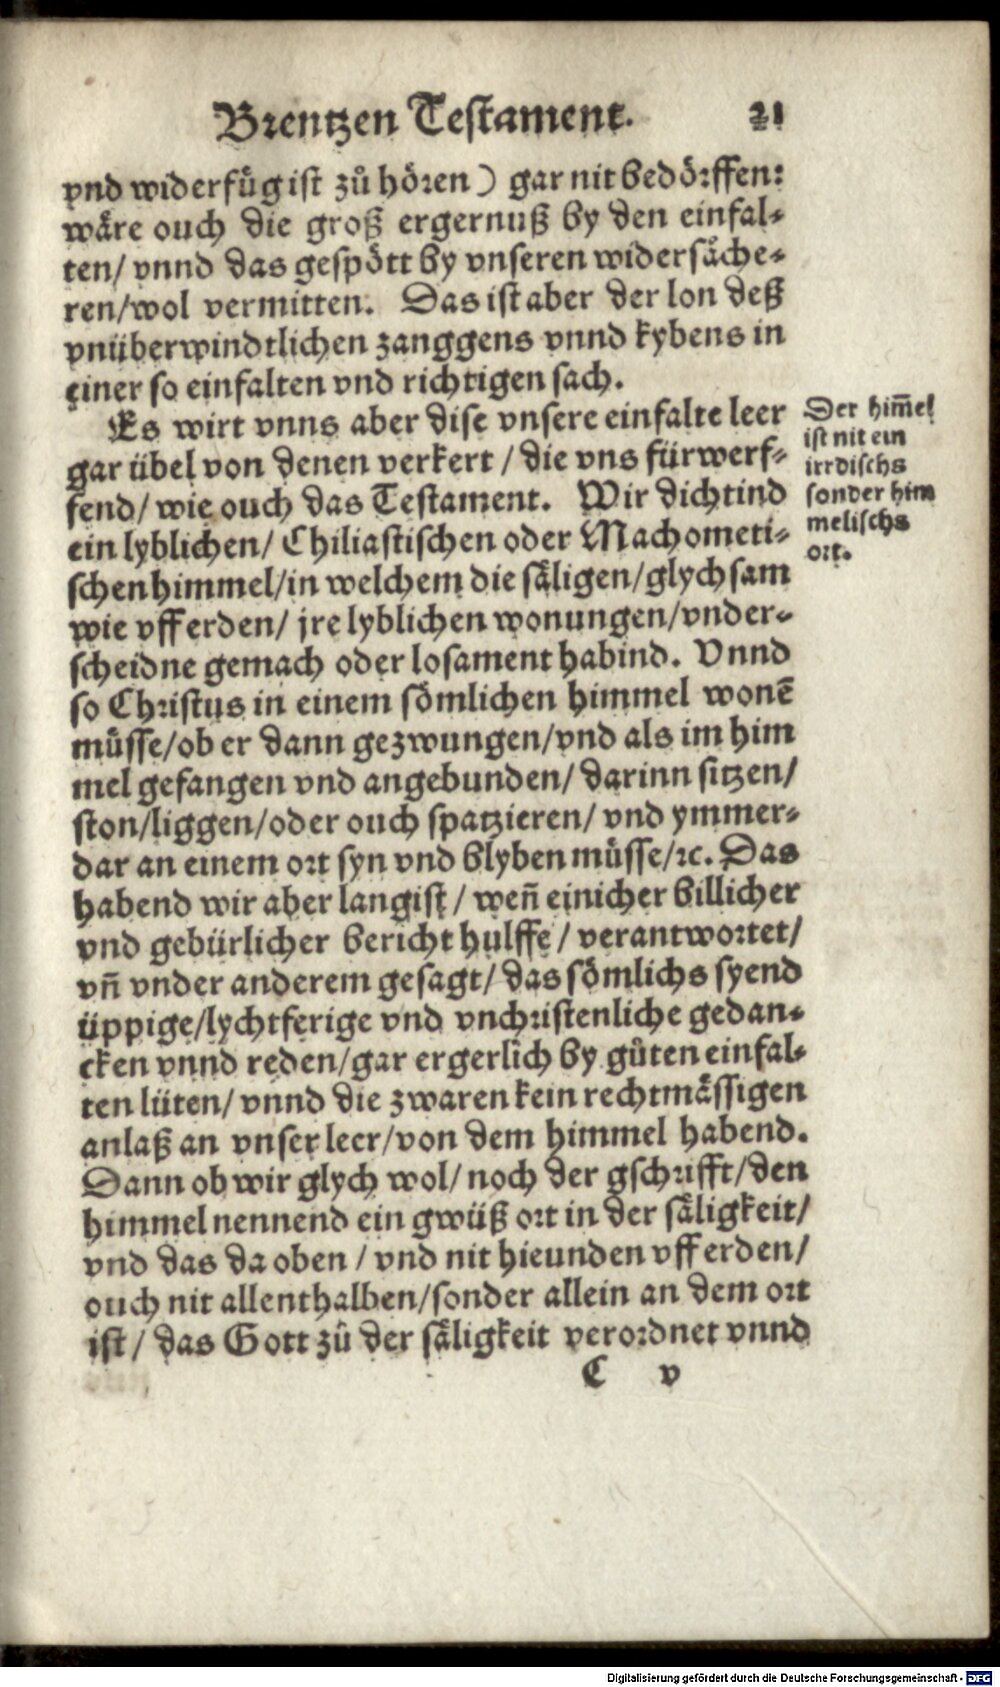 Brentzen Testament. 21
vnd widerfůg ist zů hören) gar nit bedörffen:
wäre ouch die groß ergernuß by den einfal⸗
ten/ vnnd das gespött by vnseren widersäche⸗
ren/wol vermitten. Das ist aber der lon deß
vnüberwindtlichen zanggens vnnd kybens in
einer so einfalten vnd richtigen sach.
Es wirt vnns aber dise vnsere einfalte leer
gar übel von denen verkert / die vns fürwerf⸗
fend/ wie ouch das Testament. Wir dichtind
ein lyblichen/ Chiliastischen oder Machometi⸗
schen himmel/in welchem die säligen/glychsam
wie vff erden/ jre lyblichen wonungen/vnder⸗
scheidne gemach oder losament habind. Vnnd
so Christus in einem sömlichen himmel wonē
müsse/ob er dann gezwungen/vnd als im him
mel gefangen vnd angebunden/ darinn sitzen/
ston/liggen/oder ouch spatzieren/ vnd ymmer⸗
dar an einem ort syn vnd blyben müsse/ꝛc. Das
habend wir aber langist / weñ einicher billicher
vnd gebürlicher bericht hulffe / verantwortet/
vñ vnder anderem gesagt/ das sömlichs syend
üppige/lychtferige vnd vnchristenliche gedan⸗
cken vnnd reden/gar ergerlich by gůten einfal⸗
ten lüten/ vnnd die zwaren kein rechtmässigen
anlaß an vnser leer/von dem himmel habend.
Dann ob wir glych wol/ noch der gschrifft/den
himmel nennend ein gwüß ort in der säligkeit/
vnd das da oben / vnd nit hieunden vff erden/
ouch nit allenthalben/sonder allein an dem ort
ist/ das Gott zů der säligkeit verordnet vnnd
C v
Der him̄el
ist nit ein
irrdischs
sonder him
melischs
ort.
Digitalisierung gefördert durch die Deutsche Forschungsgemeinschaft - DFG